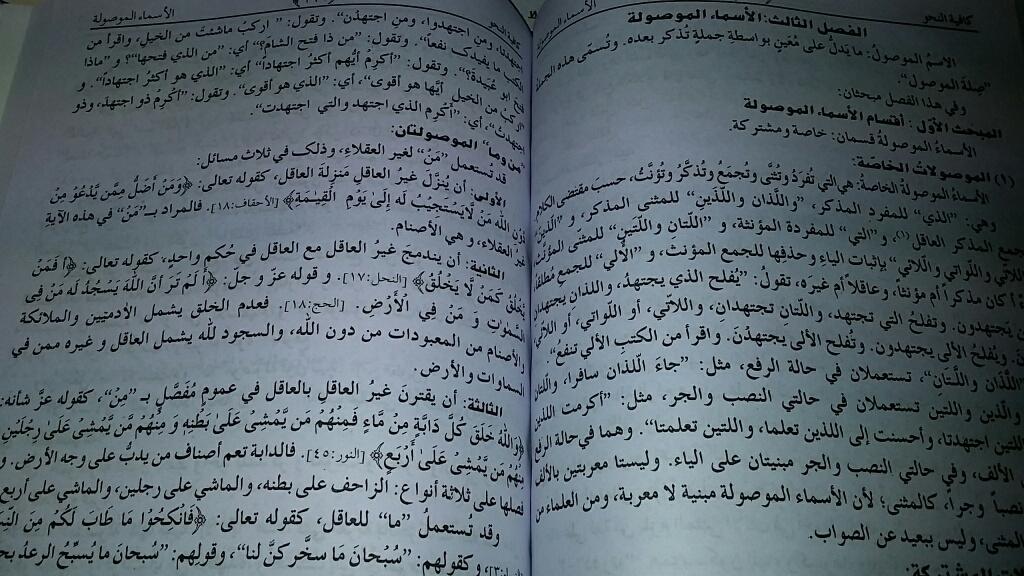 كافية النحو
الأسماء الموصولة
الفصل الثالث: الأسماء الموصولة
الاسم الموصولُ: ما يَدلُّ على مُعَينٍ بواسطةِ جملةٍ تُذكر بعده. وتُسمّى هذه الجملة
"صِلةَ الموصول".
وفي هذا الفصل مبحثان:
المبحث الأوّل: أقسام الأسماء الموصولة
الأسماءُ الموصولةُ قسمان: خاصة ومشتركة.
(١) الموصولات الخاصّة:
الأسماءُ الموصولةُ الخاصةُ: هي التي تُفرَدُ وتُثنَّى وتُجمَعُ وتُذكَّرُ وتُؤنَّثُ، حسبَ مقتضى الكلام.
وهي: "الذي" للمفرد المذكر، "واللَّذان واللَّذَين" للمثنى المذكر، و "الَّذينَ"
لجمع المذكر العاقل (١)، و "التي" للمفردة المؤنثة، و "اللَّتان واللَّتَين" للمثنى المؤنث
اللاتي واللَّواتي واللاّئي" بإثبات الياء وحذفها للجمع المؤنث، و "الأُلي" للجمع مُطلقاً
أكان مذكراً أم مؤنثاً، وعاقلاً أم غيره، تقولُ: "يُفلح الذي يجتهد، واللذان يجتهدان
يجتهدون. وتفلحُ التي تجتهد، واللَّتان تجتهدان، واللاتي، أو اللَّواتي، أو اللاّئي
ويفلحُ الألي يجتهدون. وتَفلح الألي يجتهدْنَ. واقرأ من الكتبِ الألي تنفعُ".
"اللَّذان واللَّتَانِ"، تستعملان في حالة الرفع، مثل: "جاءَ اللَّذان سافرا، واللَّتان
والَّذين واللتين تستعملان في حالتي النصب والجر، مثل: "أكرمت اللذين
اللتين اجتهدتا، وأحسنت إلى اللذين تعلما، واللتين تعلمتا". وهما في حالة الرفع
الألف، وفي حالتي النصب والجر مبنيتان على الياء. وليستا معربتين بالألف
نصباً وجراً، كالمثنى؛ لأن الأسماء الموصولة مبنية لا معربة، ومن العلماء من
المثنى، وليس ببعيد عن الصواب.
كافية النحو
الأسماء الموصولة
ومن اجتهدوا، ومن اجتهدْن". وتقول: "اركبْ ماشئتَ من الخيلِ، واقرأ من
الكتب ما يفيدك نفعاً". وتقول: "من ذا فتح الشامَ؟" أي: "من الذي فتحها"؟ و "ماذا
فتح أبو عُبيدةَ؟". وتقول: "أكرِمْ أيُّهم أكثرُ اجتهاداً" أي: "الذي هو أكثرُ اجتهاداً". و
"اركبْ من الخيل أيُّها هو أقوى"، أي: "الذي هو أقوى". وتقول: "أكرِمْ ذو اجتهدَ، وذو
اجتهدتْ"، أي: "أكرِم الذي اجتهد والتي اجتهدت".
"من وما" الموصولتان:
قد تُستعمل "مَنْ" لغير العقلاءِ، وذلك في ثلاث مسائل:
الأولى: أن يُنزَّلَ غيرُ العاقلِ مَنزلةَ العاقل، كقوله تعالى: ﴿وَمَنْ أَضَلُّ مِمَّن يَدْعُو مِنْ
دُونِ اللّٰهِ مَنْ لَّا يَسْتَجِيْبُ لَهُ إِلَىٰ يَوْمِ الْقِيٰمَةِ﴾ [الأحقاف:١٨]. فالمراد بـ"مَنْ" في هذه الآيةِ
غير العقلاء، و هي الأصنام.
الثانية: أن يندمجَ غيرُ العاقل مع العاقل في حُكمٍ واحدٍ، كقوله تعالى: ﴿أَفَمَنْ
يَخْلُقُ كَمَنْ لَّا يَخْلُقُ﴾ [النحل:١٧]. و قوله عزّ و جلّ: ﴿أَلَمْ تَرَ أَنَّ اللّٰهَ يَسْجُدُ لَهُ مَنْ فِي
السَّمٰوٰتِ وَ مَنْ فِي الْأَرْضِ. [الحج:١٨]. فعدم الخلق يشمل الآدميين والملائكة
والأصنام من المعبودات من دون اللّٰه، والسجود للّٰه يشمل العاقل و غيره ممن في
السماوات والأرض.
الثالثة: أن يقترنَ غيرُ العاقلِ بالعاقل في عمومٍ مُفصَّلٍ بـ "مِنْ"، كقوله عزَّ شأنه:
﴿وَاللّٰهُ خَلَقَ كُلَّ دَآبَّةٍ مِنْ مَّآءٍ فَمِنْهُمْ مَن يَّمْشِى عَلَىٰ بَطْنِهِ وَ مِنْهُمْ مَّنْ يَّمْشِى عَلَىٰ رِجْلَيْنِ
مِنْهُمْ مَنْ يَّمْشِى عَلَىٰ أَرْبَعٍ﴾ [النور:٤٥]. فالدابة تعم أصناف من يدبُّ على وجه الأرض. و
فصلها على ثلاثة أنواع: الزاحف على بطنه، والماشي على رجلين، والماشي على أربع
وقد تُستعملُ "ما" للعاقل، كقوله تعالى: ﴿فَانْكِحُوْا مَا طَابَ لَكُمْ مِنَ
و كقولهم: "سُبْحانَ ما سخَّر كنَّ لنا"، وقولِهم: "سُبحانَ ما يُسبِّحُ الرعدُ